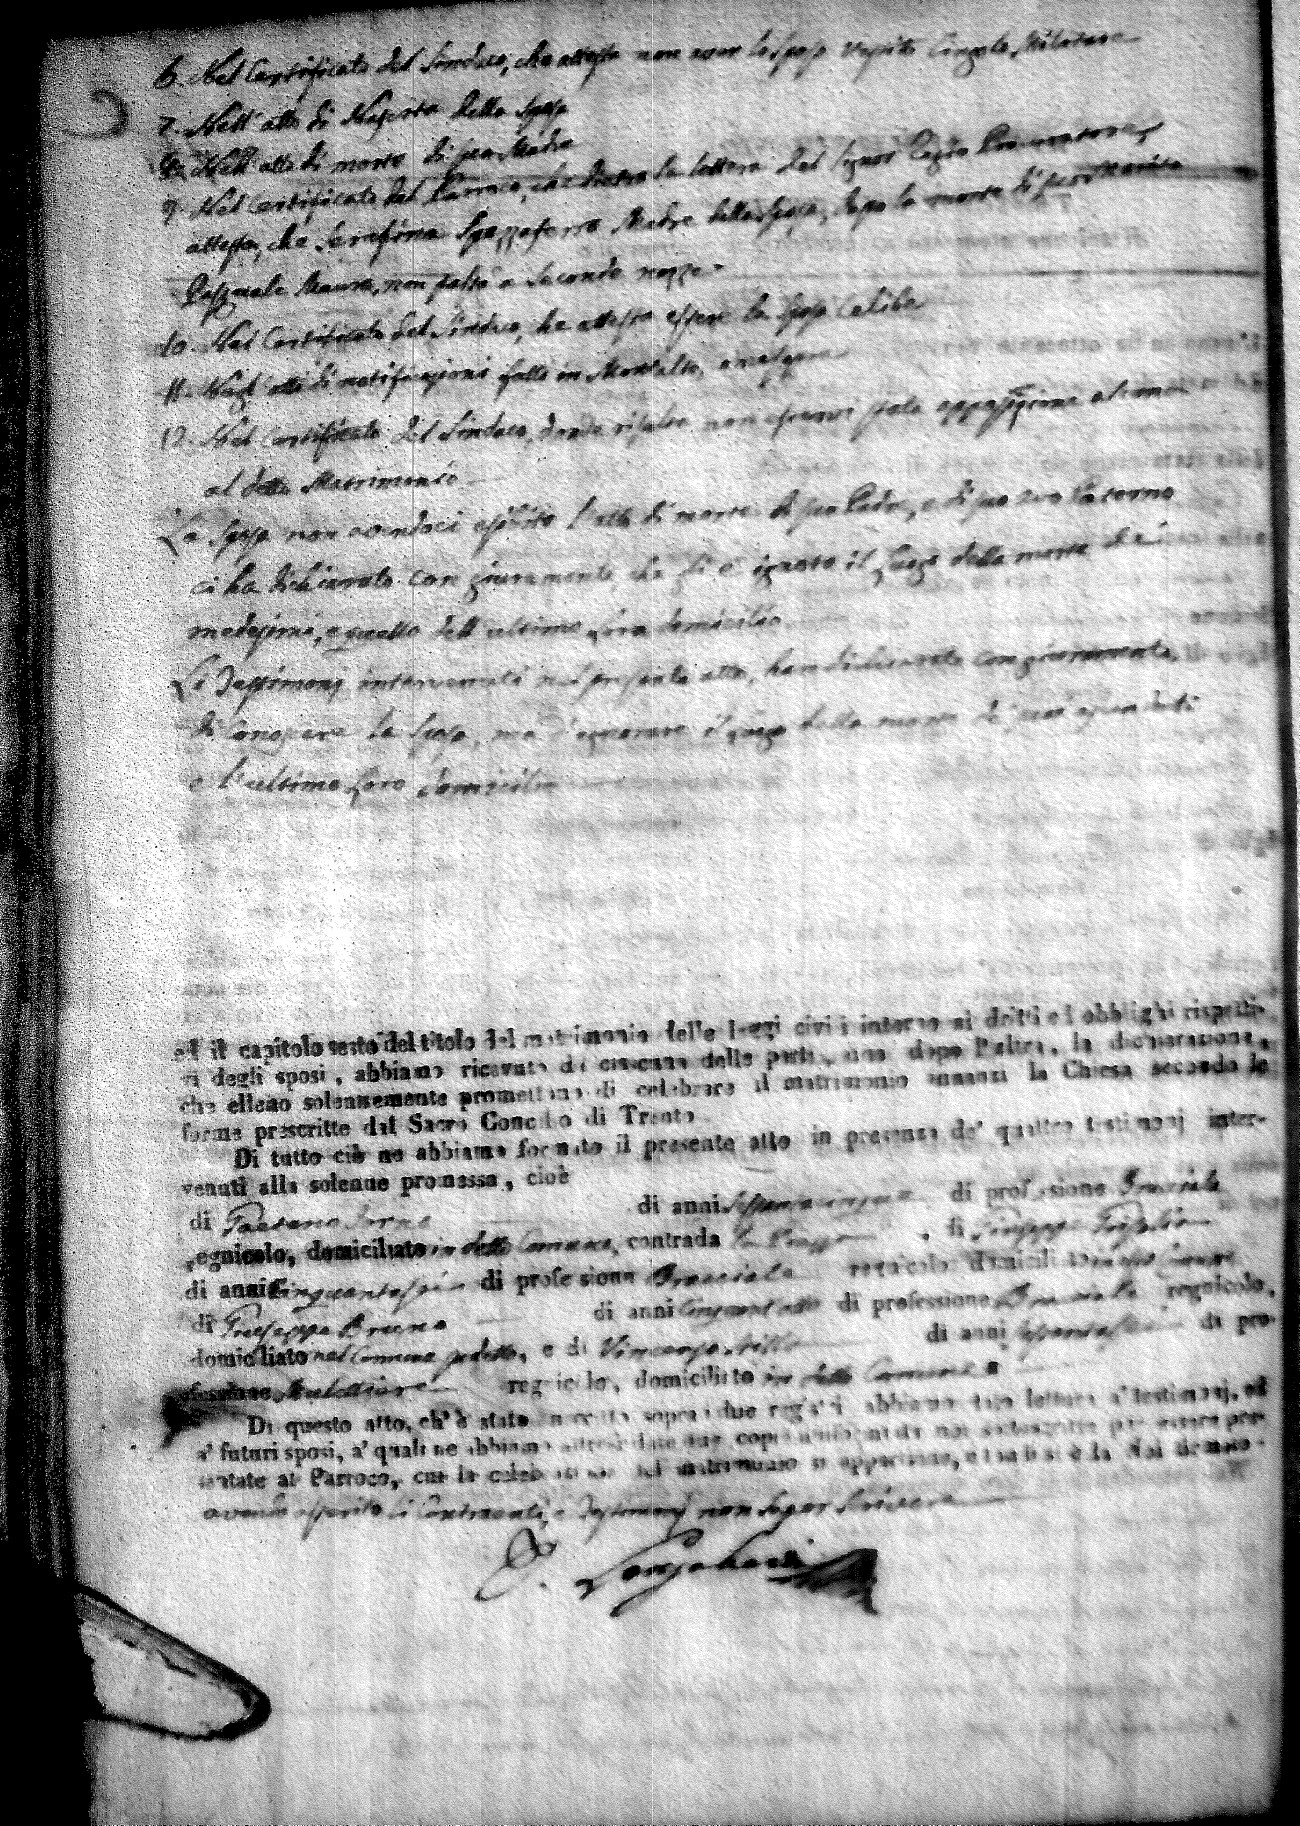 6. Nel Certificato del Sindaco, che attesta non aver lo Sposo vestito Cingolo Militare
7. Nell'atto di Nascita della Sposa
8. Nell'atto di morte di sua Madre
9. Nel Certificato del Parroco, che dietro la lettera del Signor Regio Procuratore,
attesta, che Serafina Spezzaferro Madre della Sposa, dopo la morte di suo marito
Pasquale Mauro, non passò a seconde nozze
10. Nel Certificato del Sindaco, che attesta essere la Sposa Celibe
11. Negl'atti di notificazioni fatte in Montalto,
12. Nel Certificato del Sindaco, donde risulta non esservi stata opposizione alcuna
al detto Matrimonio
La Sposa non avendoci esibito l'atto di morte di suo Padre, e di suo avo Paterno
ci ha dichiarato con giuramento, che gli è ignoto il luogo della morte de'
medesimi, e quello dell'ultimo loro domicilio
Li Testimonj intervenuti nel presente atto, han dichiarato con giuramento,
di conoscere la Sposa, ma d'ignorare il luogo della morte di suoi
e l'ultimo loro domicilio
ed il capitolo sesto del titolo del matrimonio delle leggi civili intorno ai dritti ed obblighi rispetti-
vi degli sposi, abbiamo ricevuto da ciascuna delle parti, una dopo l'altra, la dichiarazione,
che elleno solennemente promettono di celebrare il matrimonio innanzi la Chiesa secondo le
forme prescritte dal Sacro Concilio di Trento.
Di tutto ciò ne abbiamo formato il presente atto in presenza de' quattro testimonj inter-
venuti alla solenne promessa, cioè
di Gaetano di anni di professione Bracciale
regnicolo, domiciliato in detto Comune, contrada la Piazza, di Giuseppe
di anni Cinquantasei di professione Bracciale regnicolo domiciliato
di Giuseppe Bruno di anni Cinquantotto di professione Bracciale regnicolo,
domiciliato nel Comune suddetto, e di Vincenzo di anni di pro-
fessione Mulattiere regnicolo, domiciliato in detto Comune
Di questo atto, ch'è stato inscritto sopra i due registri abbiamo dato lettura a' testimonj, ed
a' futuri sposi, a' quali ne abbiamo altresì date due copie uniformi da noi sottoscritte per essere pre-
sentate al Parroco, cui la celebrazione del matrimonio si appartiene, e indi si è da Noi firmato
avendo asserito li Contraenti, e Testimonj non saper scrivere